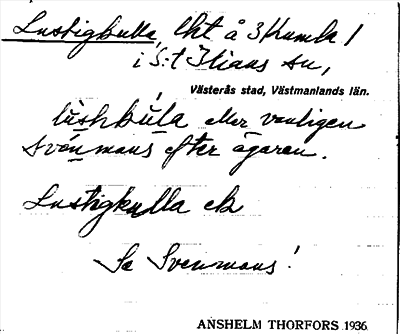 Lustigkulla, lht å 3 Kumla /
i S:t Ilians sn,
Västerås stad, Västmanlands län.
lùshkùla eller vanligen
Svénmans efter ägaren.
Lustigkulla ek
Se Svenmans!
ANSHELM THORFORS 1936